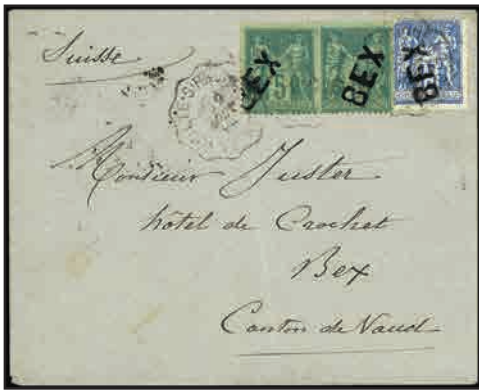 Suisse
BEX
BEX
BEX
5
Monsieur Juster
hôtel de Crochet
Bex
Canton de Vaud